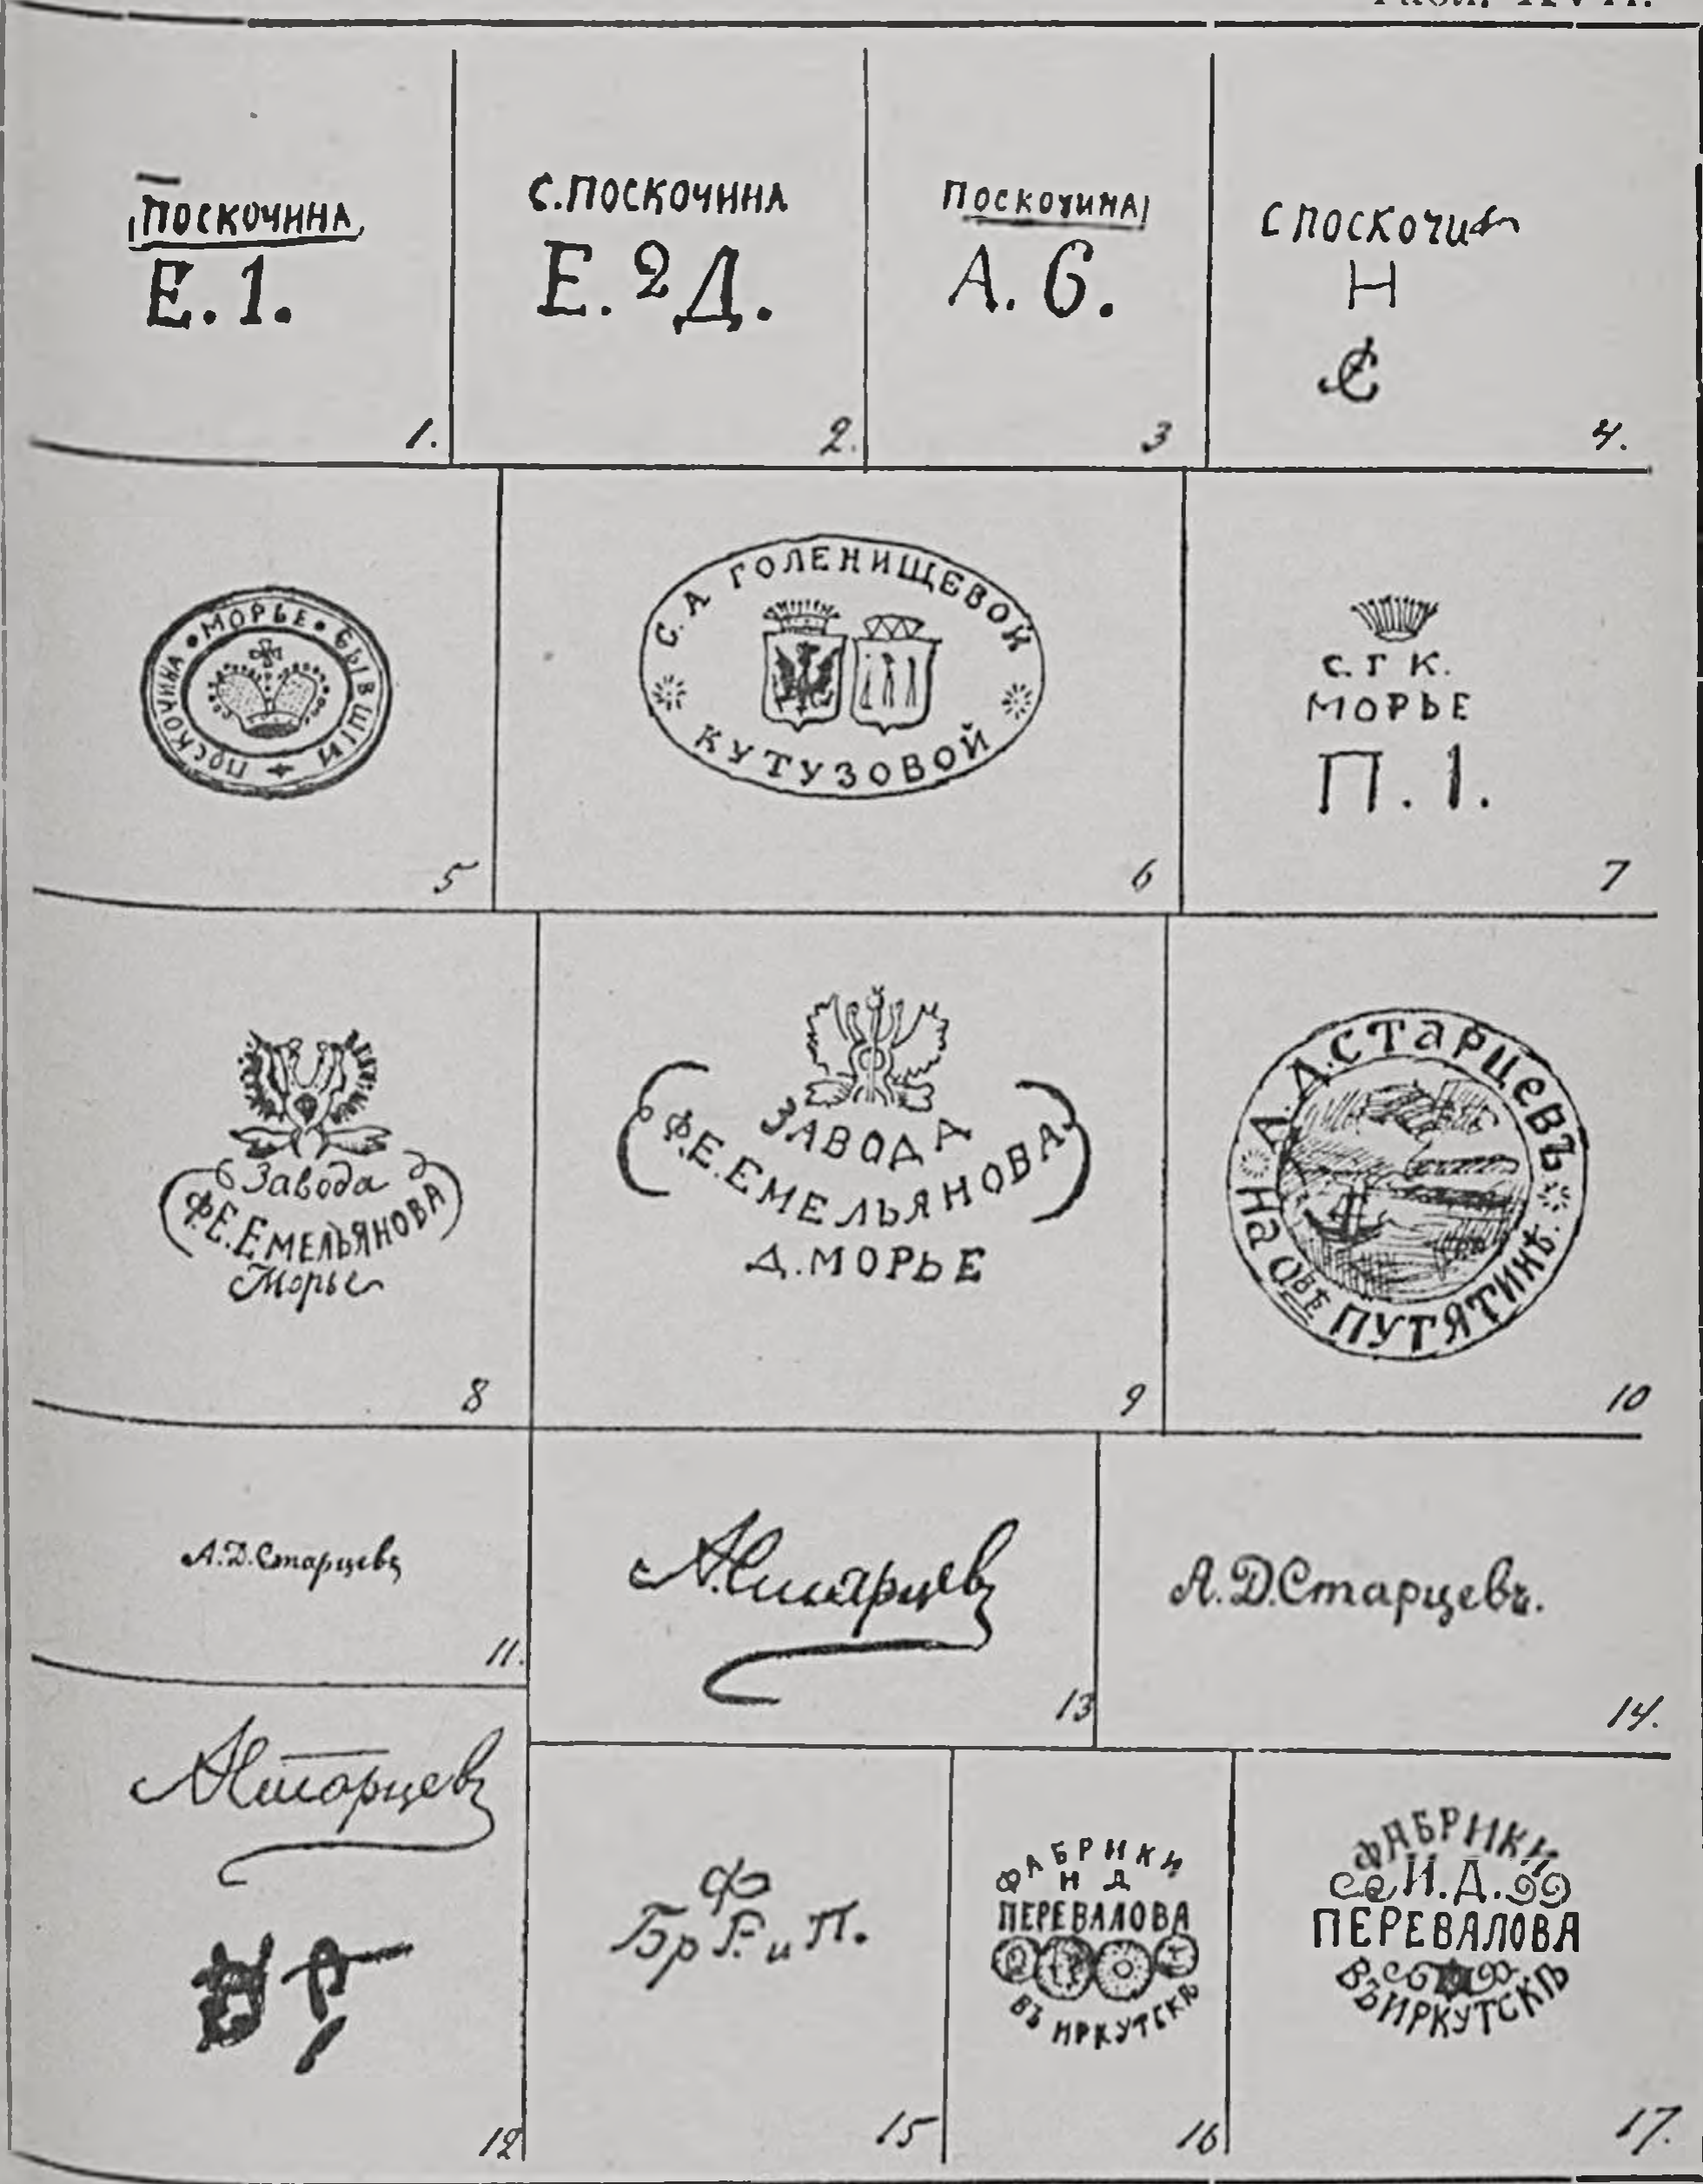 ПОСКОЧИНА
Е. 1.
1.
С. ПОСКОЧИНА
Е. 2 Д.
2.
ПОСКОЧИНА
А. 6.
3
С ПОСКОЧИН
Н
4.
МОРЬЕ • БЫВШІЙ ПОСКОЧИНА
5
С. А ГОЛЕНИЩЕВОЙ
КУТУЗОВОЙ
6
С. Г К.
МОРЬЕ
П. 1.
7
Завода
Ф.Е. ЕМЕЛЬЯНОВА
Морье
8
ЗАВОДА
Ф.Е. ЕМЕЛЬЯНОВА
Д. МОРЬЕ
9
А.Д. СТАРЦЕВЪ
НА О-ВѢ ПУТЯТИНѢ.
10
А.Д. Старцевъ
11.
А. Старцевъ
13
А. Д. Старцевъ.
14.
А Старцевъ
12
Ф
Бр Г. и П.
15
ФАБРИКИ
И Д
ПЕРЕВАЛОВА
ВЪ ИРКУТСКѢ
16
ФАБРИКИ
И. Д.
ПЕРЕВАЛОВА
ВЪ ИРКУТСКѢ
17.